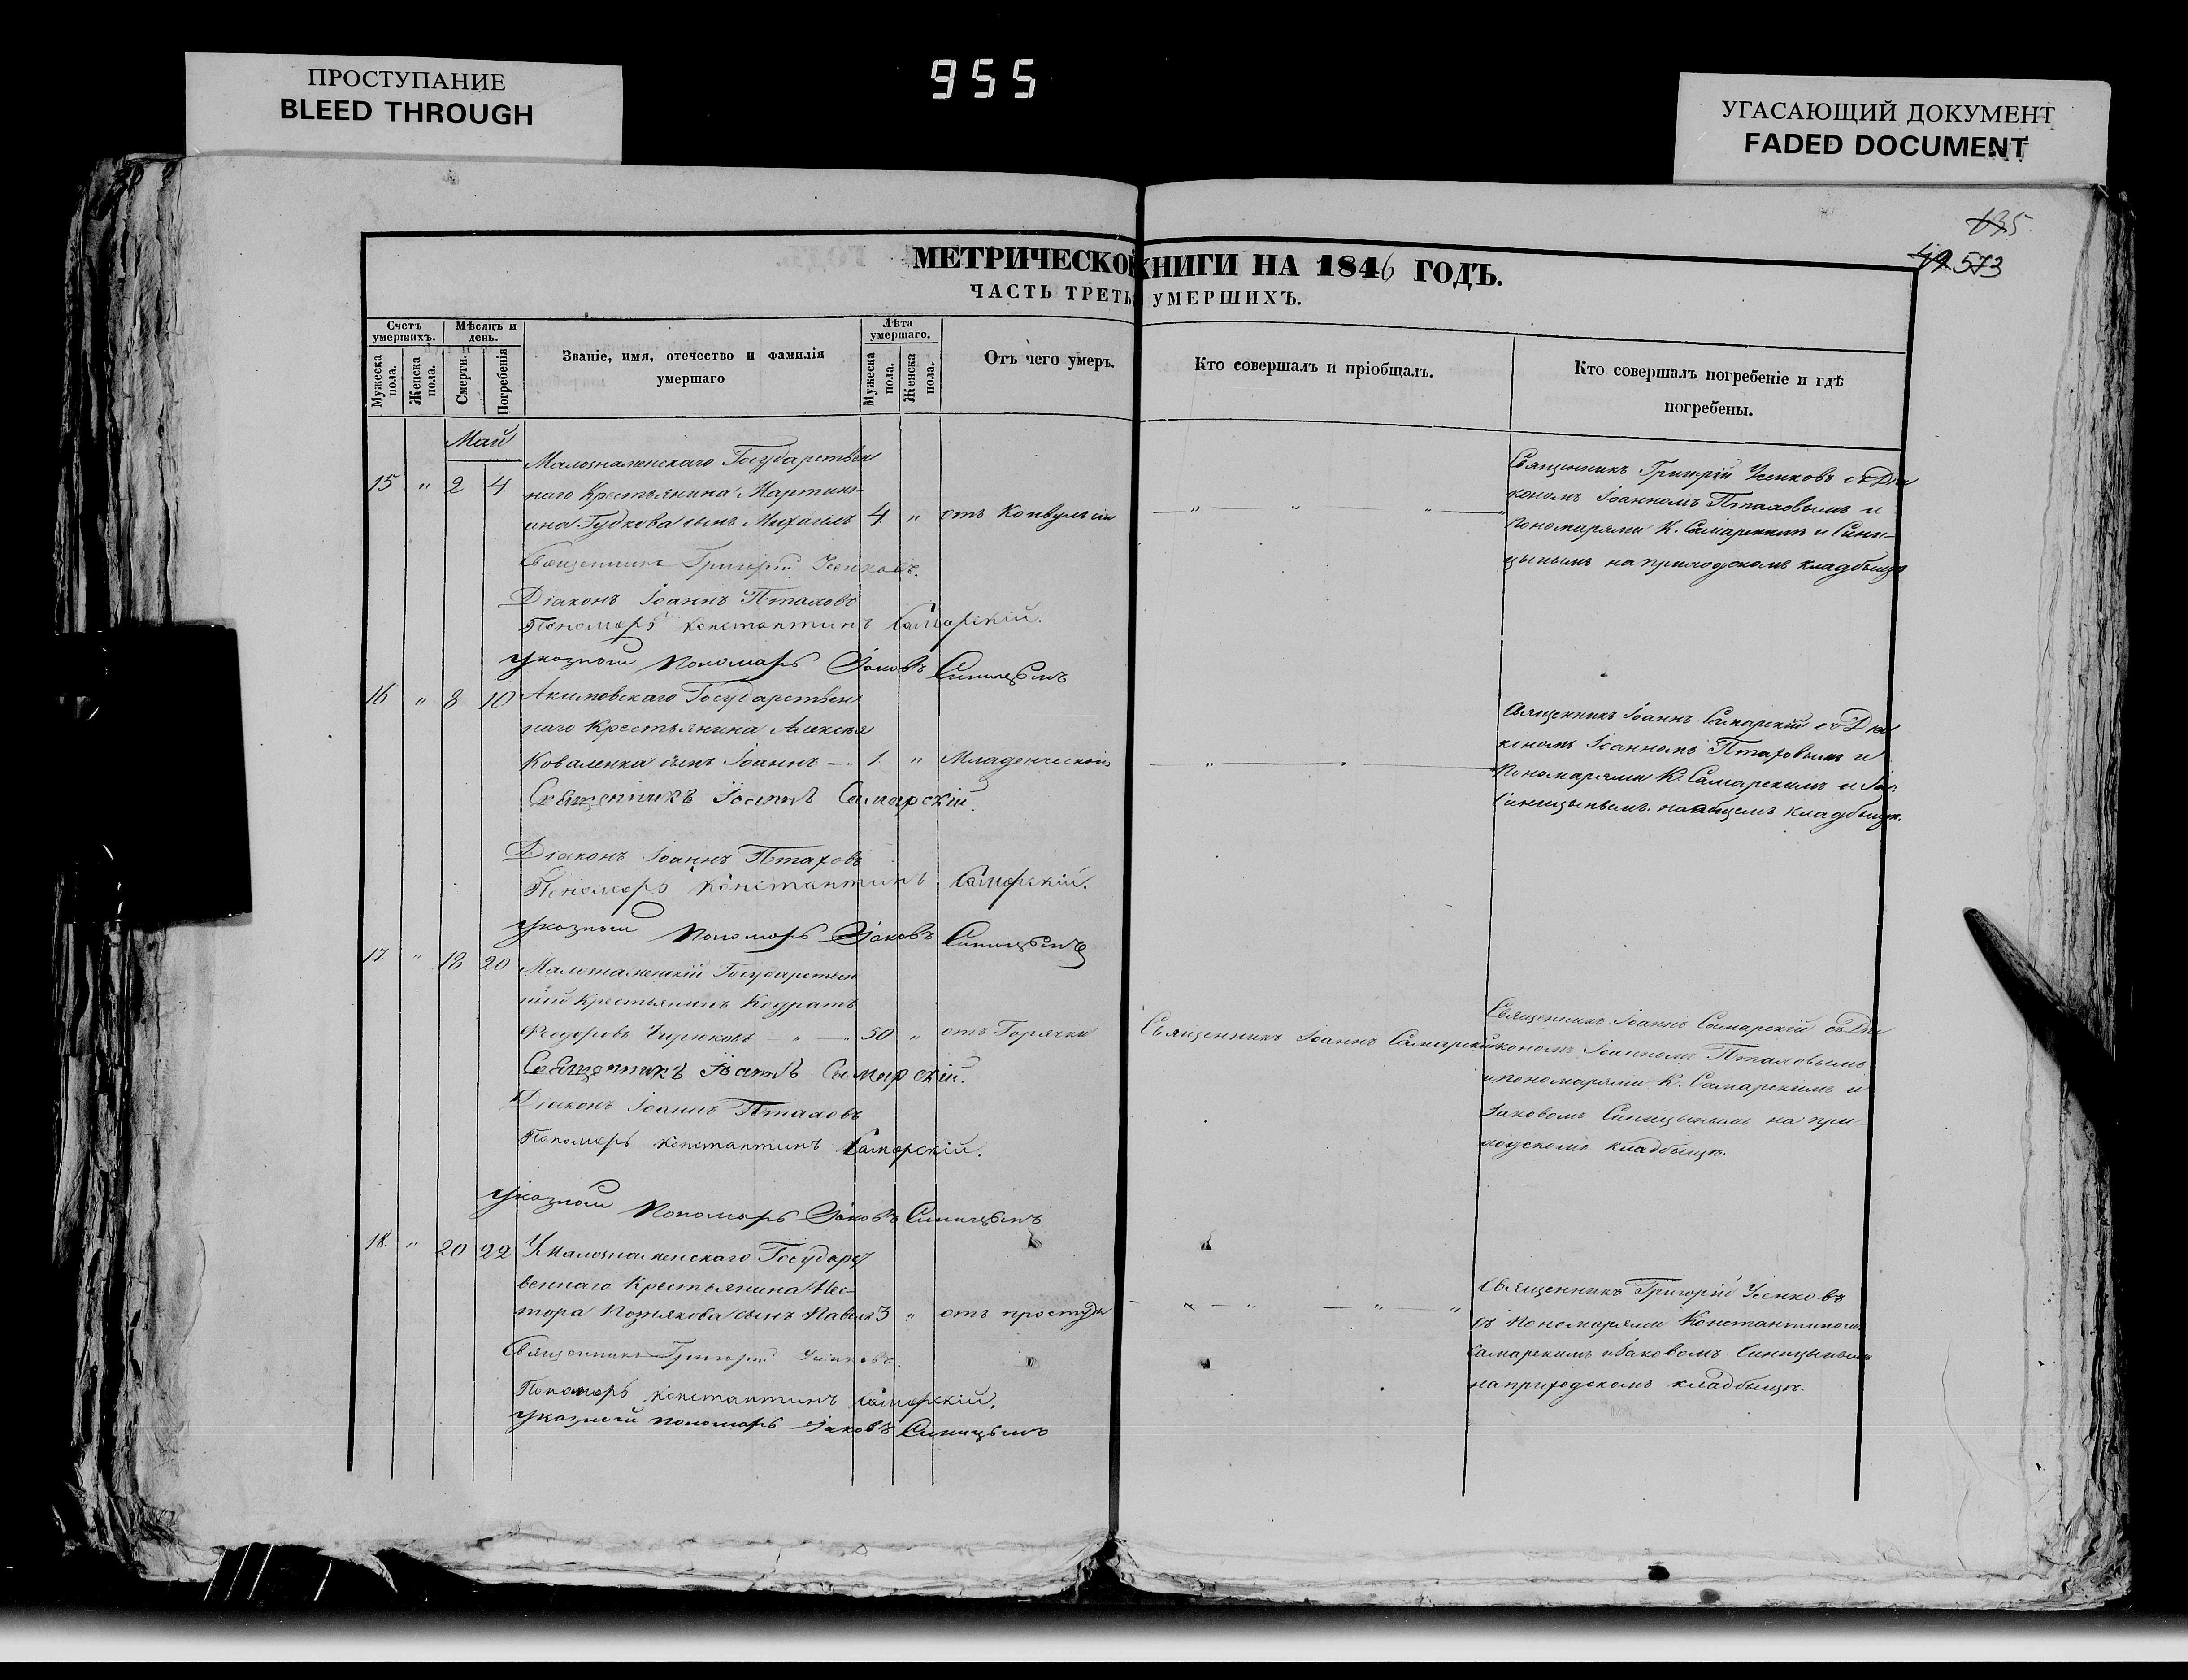 ПРОСТУПАНИЕ
BLEED THROUGH
955
УГАСАЮЩИЙ ДОКУМЕНТ
FADED DOCUMENT
135
49 573
МЕТРИЧЕСКОЙ КНИГИ НА 1846 ГОДЪ.
ЧАСТЬ ТРЕТЬ УМЕРШИХЪ.
Счетъ умершихъ.
Мѣсяцъ и день.
Мужеска пола.
Женска пола.
Смерти.
Погребенія
Званіе, имя, отечество и фамилія
умершаго
Лѣта умершаго.
Мужеска пола.
Женска пола.
Отъ чего умеръ.
Кто совершалъ и пріобщалъ.
Кто совершалъ погребеніе и гдѣ
погребены.
Май
15 " 2 4
Малознаменскаго Государствен
наго Крестьянина Мартини-
ана Гудкова сынъ Михаилъ 4 " отъ Конвульсіи
Священникъ Григорій Усенковъ съ Діа
кономъ Іоанномъ Птаховымъ и
пономарями К. Самарскимъ и Сини-
цынымъ на приходскомъ кладбищѣ
Священникъ Григорій Усенковъ.
Діаконъ Іоаннъ Птаховъ
Пономарь Константинъ Самарскій.
Указной Пономарь Іаковъ Синицынъ
16 " 8 10
Акимовскаго Государствен
наго Крестьянина Алексѣя
Коваленка сынъ Іоаннъ 1. " Младенческой
Священникъ Іоаннъ Самарскій съ Діа
кономъ Іоанномъ Птаховымъ и
Пономарями К. Самарскимъ и Іак.
Синицынымъ на общемъ кладбищѣ.
Священникъ Іоаннъ Самарскій.
Діаконъ Іоаннъ Птаховъ
Пономарь Константинъ Самарскій.
Указной Пономарь Іаковъ Синицынъ
17 " 18 20
Малознаменскій Государствен
ный Крестьянинъ Кодратъ
Федоровъ 50 " отъ Горячки
Священникъ Іоаннъ Самарскій
Священникъ Іоаннъ Самарскій съ Діа
кономъ Іоанномъ Птаховымъ
и пономарями К. Самарскимъ и
Іаковомъ Синицынымъ на при-
ходскомъ кладбищѣ.
Священникъ Іоаннъ Самарскій.
Діаконъ Іоаннъ Птаховъ
Пономарь Константинъ Самарскій.
Указной Пономарь Іаковъ Синицынъ
18. " 20 22
У Малознаменскаго Государст
веннаго Крестьянина Нес-
тора Познякова сынъ Павелъ 3 " отъ простуды
Священникъ Григорій Усенковъ
съ Пономарями Константиномъ
Самарскимъ и Іаковомъ Синицынымъ
на приходскомъ кладбищѣ.
Священникъ Григорій Усенковъ.
Пономарь Константинъ Самарскій.
Указной пономарь Іаковъ Синицынъ